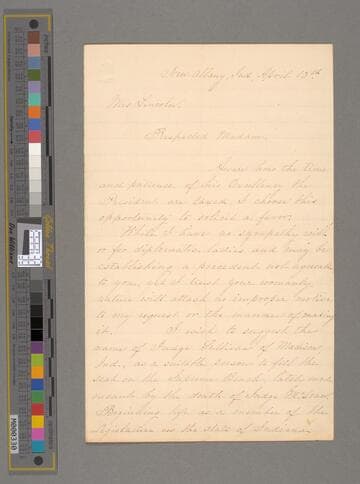 New Albany, Ind. April 13th
Mrs Lincoln,
Respected Madam,
Aware how the time
and patience of his Excellency the
President are taxed, I choose this
opportunity to solicit a favor.
While I have no sympathy with
or for diplomatic ladies and may be
establishing a precedent not agreeable
to you, yet I trust your womanly
nature will attach no improper motive
to my request or the manner of making
it. I wish to suggest the
name of Judge Sullivan of Madison
Ind., as a suitable person to fill the
seat on the Supreme Bench, lately made
vacant by the death of Judge
Beginning life as a member of the
Legislature in the state of Indiana